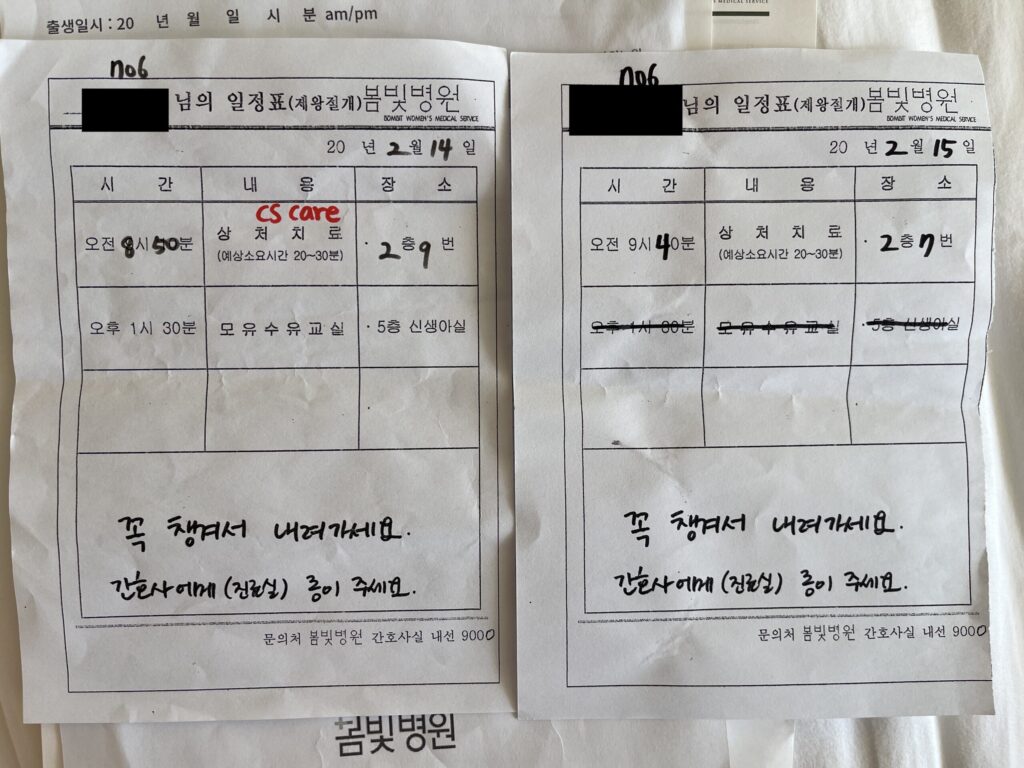 출생일시 : 20 년 월 일 시 분 am/pm
MEDICAL SERVICE
no6
님의 일정표(제왕절개) 봄빛병원
BOMBIT WOMEN'S MEDICAL SERVICE
20 년 2월 14일
시 간 내 용 장 소
CS care
오전 8시 50분 상 처 치 료 · 2층 9번
(예상소요시간 20~30분)
오후 1시 30분 모 유 수 유 교 실 · 5층 신생아실
꼭 챙겨서 내려가세요.
간호사에게 (진료실) 종이 주세요.
문의처 봄빛병원 간호사실 내선 9000
no6
님의 일정표(제왕절개) 봄빛병원
BOMBIT WOMEN'S MEDICAL SERVICE
20 년 2월 15일
시 간 내 용 장 소
오전 9시 40분 상 처 치 료 · 2층 7번
(예상소요시간 20~30분)
오후 1시 30분 모 유 수 유 교 실 · 5층 신생아실
꼭 챙겨서 내려가세요.
간호사에게 (진료실) 종이 주세요.
문의처 봄빛병원 간호사실 내선 9000
봄빛병원